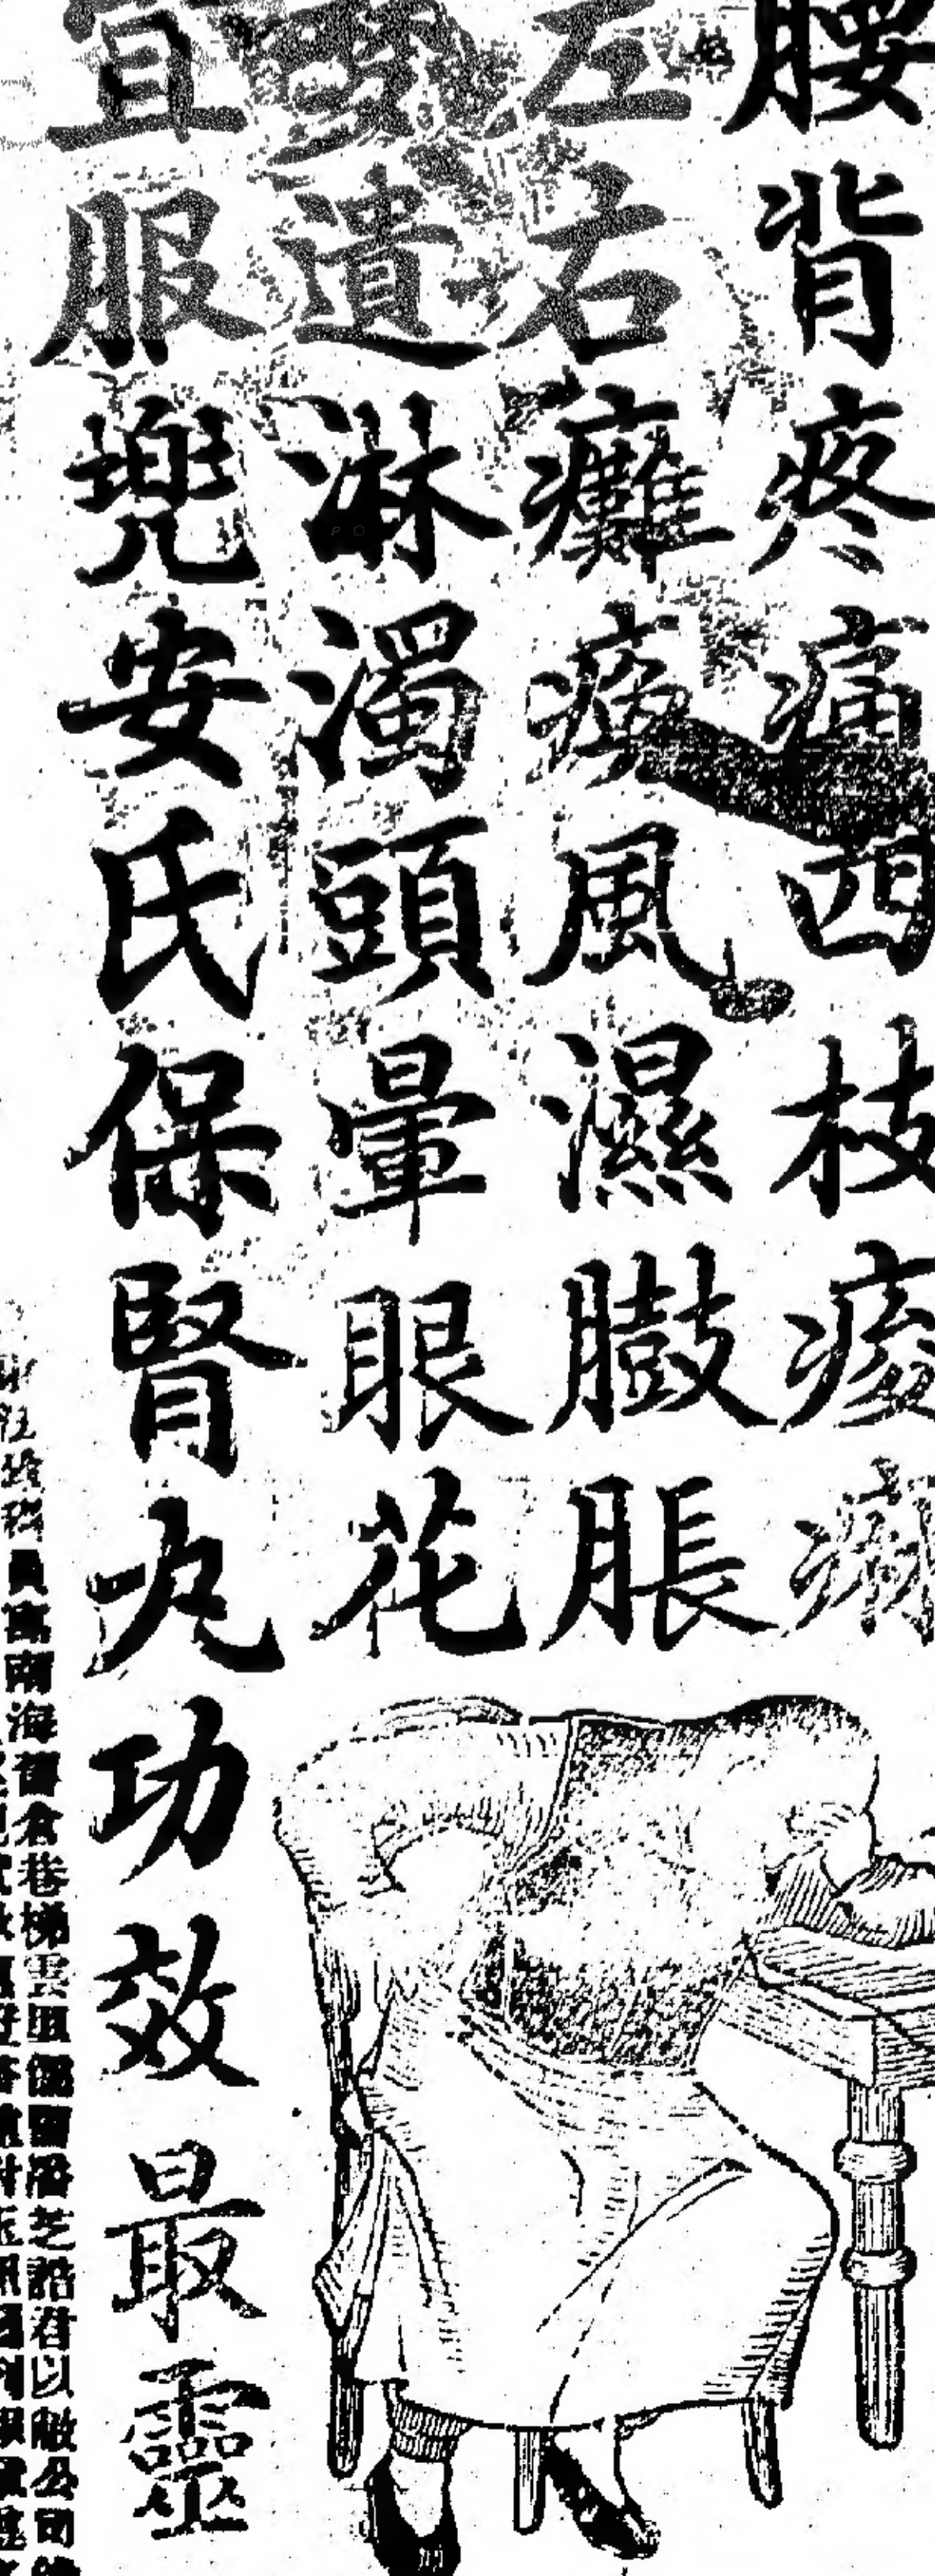 腰背疼痛四枝痠
左右癱瘓風濕臌脹
夢遺淋濁頭暈眼花
宜服兜安氏保腎丸功效最靈
寓南海倉巷梯雲里芝誥君以敝公司